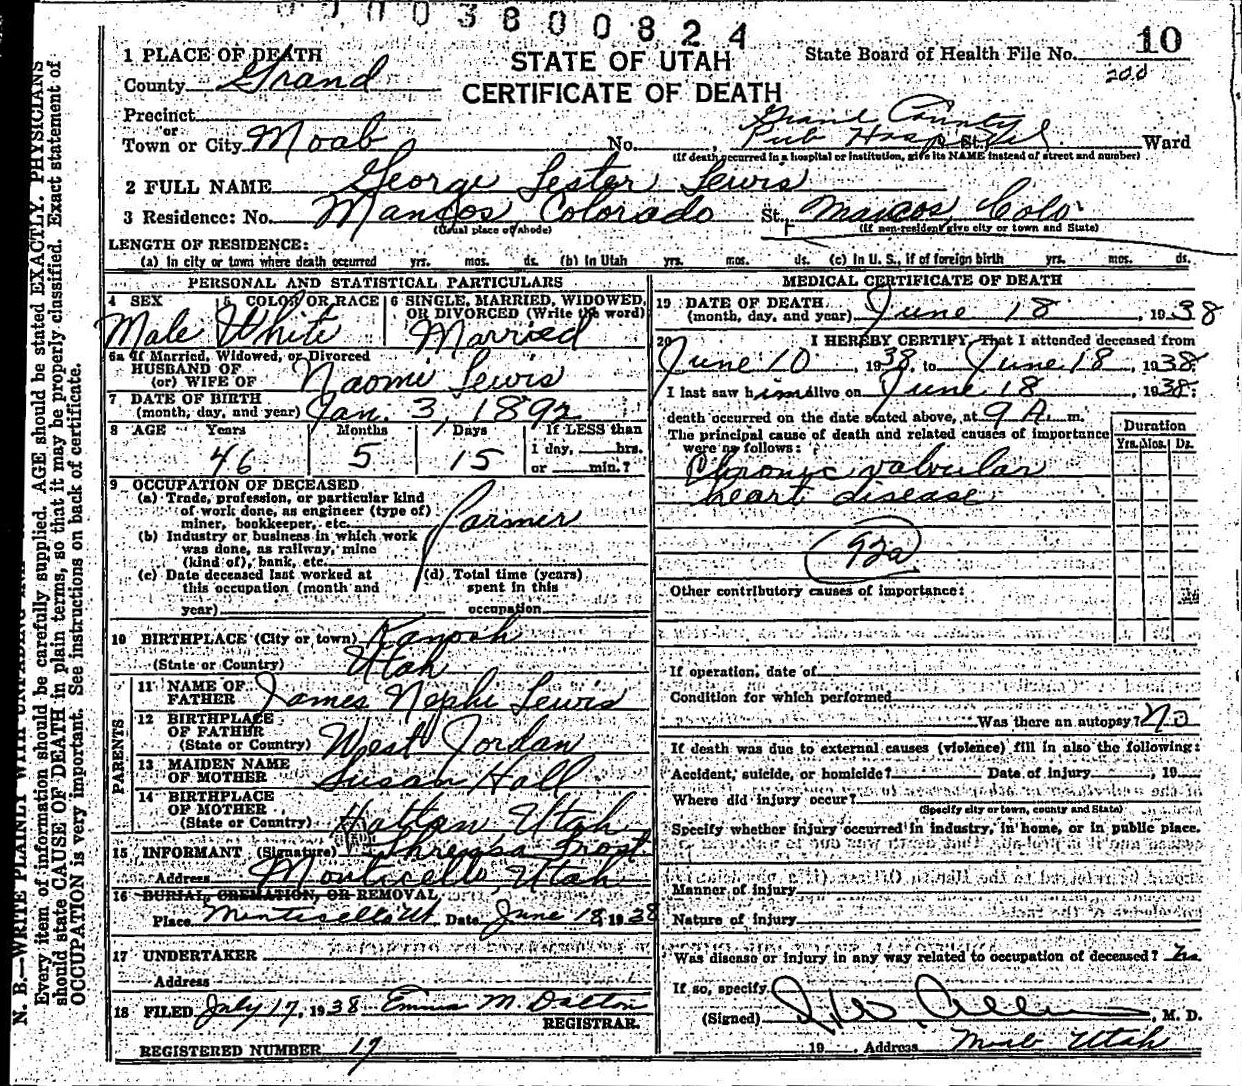 00003800824
1 PLACE OF DEATH
STATE OF UTAH
CERTIFICATE OF DEATH
State Board of Health File No. 10
200
County Grand
Precinct
or
Town or City Moab No. , Grand County Pub Hospital St. Ward
(If death occurred in a hospital or institution, give its NAME instead of street and number)
2 FULL NAME George Lester Lewis
3 Residence: No. Mancos, Colorado St. Mancos, Colo.
(Usual place of abode) (If non-resident give city or town and State)
LENGTH OF RESIDENCE:
(a) In city or town where death occurred yrs. mos. ds. (b) In Utah yrs. mos. ds. (c) In U. S., if of foreign birth yrs. mos. ds.
PERSONAL AND STATISTICAL PARTICULARS
4 SEX 5 COLOR OR RACE 6 SINGLE, MARRIED, WIDOWED, OR DIVORCED (Write the word)
Male White Married
6a If Married, Widowed, or Divorced
HUSBAND OF
(or) WIFE OF Naomi Lewis
7 DATE OF BIRTH
(month, day, and year) Jan. 3, 1892
8 AGE Years Months Days If LESS than
46 5 15 1 day, hrs.
or min.?
9 OCCUPATION OF DECEASED
(a) Trade, profession, or particular kind
of work done, as engineer (type of)
miner, bookkeeper, etc. Farmer
(b) Industry or business in which work
was done, as railway, mine
(kind of), bank, etc.
(c) Date deceased last worked at
this occupation (month and
year)
(d) Total time (years)
spent in this
occupation
10 BIRTHPLACE (City or town) Kanosh
(State or Country) Utah
PARENTS
11 NAME OF
FATHER James Nephi Lewis
12 BIRTHPLACE
OF FATHER
(State or Country) West Jordan
13 MAIDEN NAME
OF MOTHER Susan Hall
14 BIRTHPLACE
OF MOTHER
(State or Country) Hatton Utah
15 INFORMANT (Signature) Frost
Address Monticello, Utah
16 BURIAL, CREMATION, OR REMOVAL
Place Monticello Ut. Date June 18, 1938
17 UNDERTAKER
Address
18 FILED July 17, 1938 Emma M. Dalton
REGISTRAR.
REGISTERED NUMBER 17
MEDICAL CERTIFICATE OF DEATH
19 DATE OF DEATH
(month, day, and year) June 18, 1938
20 I HEREBY CERTIFY, That I attended deceased from
June 10, 1938, to June 18, 1938.
I last saw him alive on June 18, 1938;
death occurred on the date stated above, at 9 A. m.
The principal cause of death and related causes of importance
were as follows:
Duration
Yrs. Mos. Ds.
Chronic valvular
heart disease
92a
Other contributory causes of importance:
If operation, date of
Condition for which performed
Was there an autopsy? No
If death was due to external causes (violence) fill in also the following:
Accident, suicide, or homicide? Date of injury , 19
Where did injury occur?
(Specify city or town, county and State)
Specify whether injury occurred in industry, in home, or in public place.
Manner of injury
Nature of injury
Was disease or injury in any way related to occupation of deceased? No
If so, specify
(Signed) , M. D.
19 Address Moab Utah
N. B.—WRITE PLAINLY WITH UNFADING
Every item of information should be carefully supplied. AGE should be stated EXACTLY. PHYSICIANS
should state CAUSE OF DEATH in plain terms, so that it may be properly classified. Exact statement of
OCCUPATION is very important. See instructions on back of certificate.